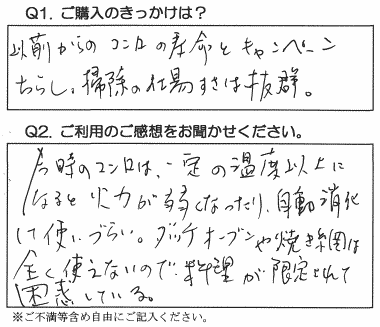 Q1. ご購入のきっかけは？
以前からのコンロの寿命とキャンペーン
ちらし。掃除の仕易すさは抜群。
Q2. ご利用のご感想をお聞かせください。
今時のコンロは、一定の温度以上に
なると火力が弱くなったり、自動消化
は使いづらい。ダッチオーブンや焼き網は
全く使えないので、料理が限定されて
困惑している。
※ご不満等含め自由にご記入ください。